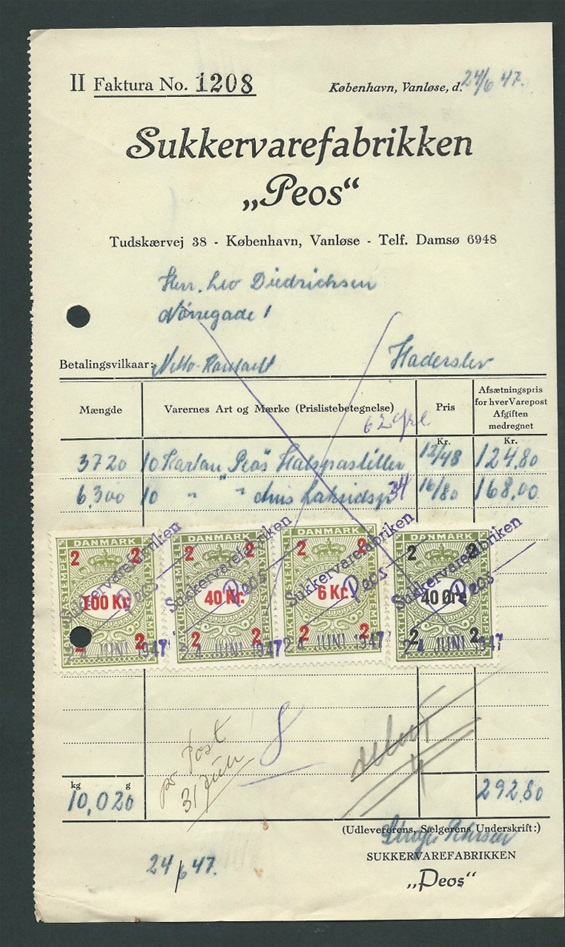 II Faktura No. 1208
København, Vanløse, d. 24/6 47.
Sukkervarefabrikken
„Peos“
Tudskærvej 38 - København, Vanløse - Telf. Damsø 6948
Herr. Leo Diedrichsen
Nørregade 1
Betalingsvilkaar: Netto-Kontant Haderslev
Mængde Varernes Art og Mærke (Prislistebetegnelse) Pris Afsætningspris for hver Varepost Afgiften medregnet
Kr. Kr.
3720 10 Kartan „Peos“ Halspastiller 12/48 124,80
6,300 10 " " 34 16/80 168,00
STEMPEL DANMARK 2 2 100 Kr. 2 2
DANMARK 2 2 40 Kr. 2 2
DANMARK 2 2 6 Kr. 2 2
DANMARK 2 2 40 Øre 2 2
Sukkervarefabriken Sukkervarefabriken Sukkervarefabriken Sukkervarefabriken
24 JUNI 1947 24 JUNI 1947 24 JUNI 1947 24 JUNI 1947
pr Post
31 Juli
8
kg g
10,020 292,80
(Udleverens, Sælgerens Underskrift:)
SUKKERVAREFABRIKKEN
„Peos“
24/6 47.